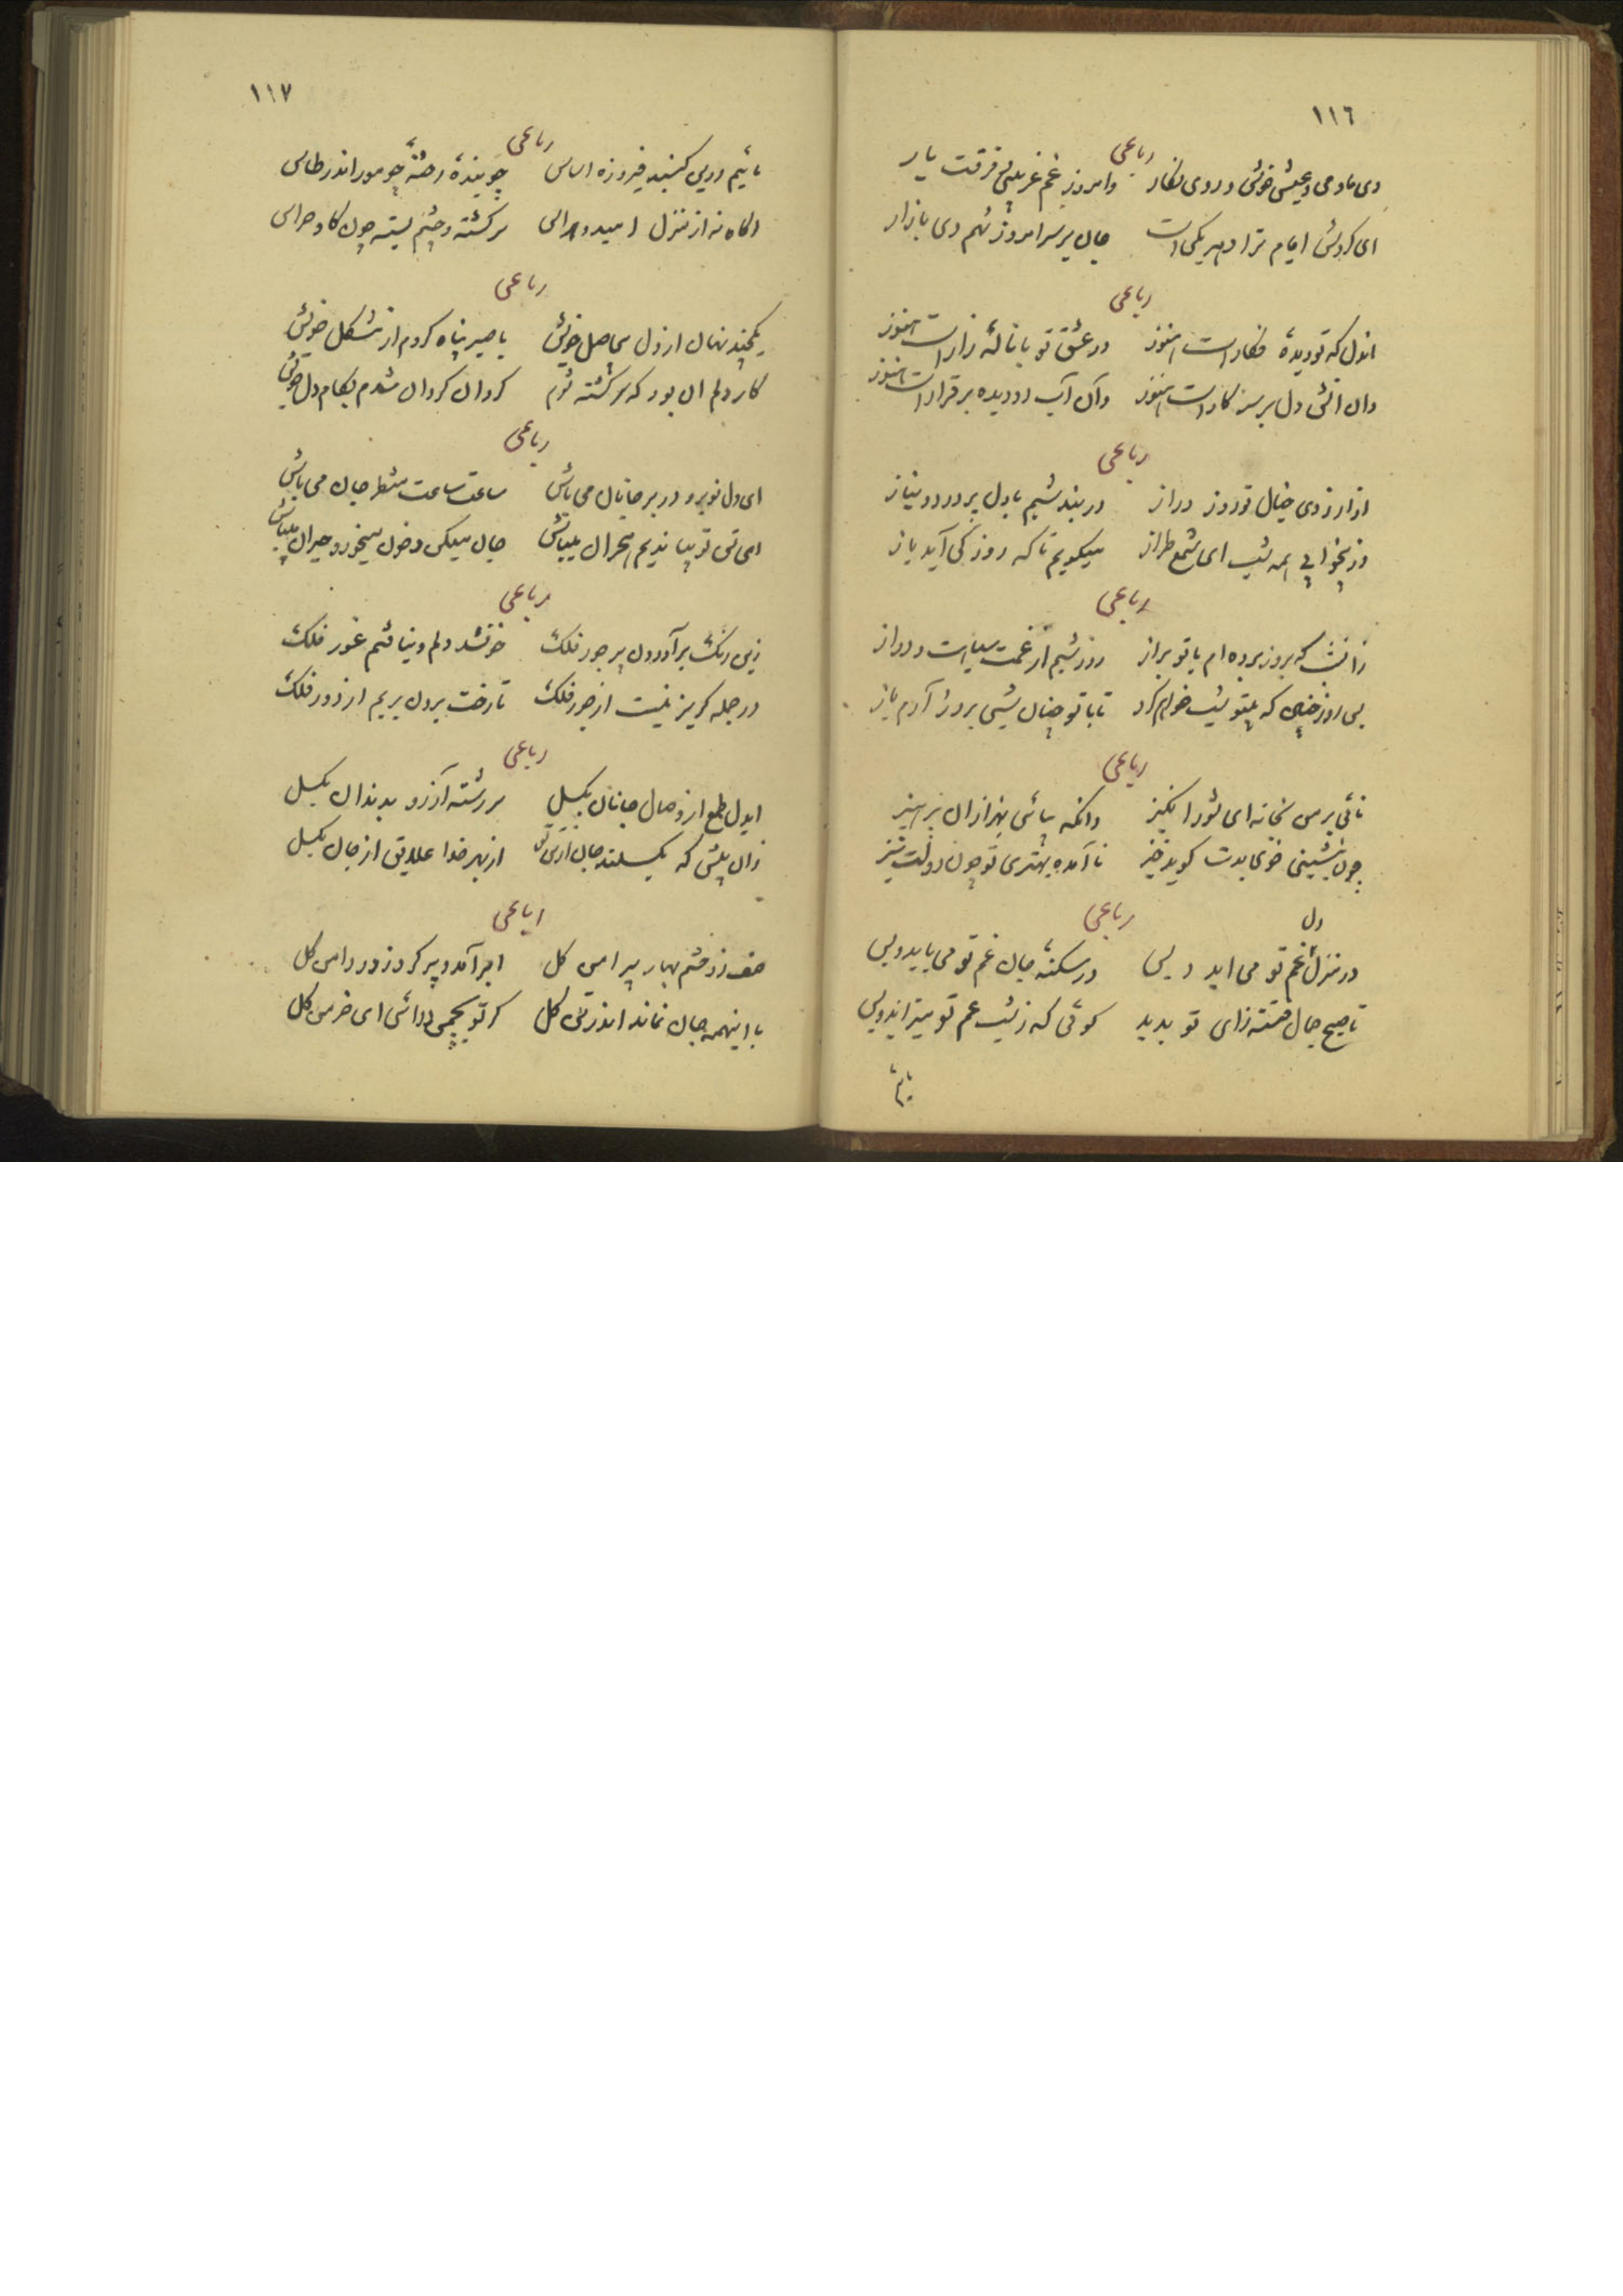 ١١٦
رباعی
دی ما و می و عیش خوش و روی نگار وامروز غم غریبی و فرقت یار
ای گردش ایام ترا هر دو یکی است جان بر سر امروز نهم دی باز ار
رباعی
اندل که تو دیدهٔ فکار است هنوز در عشق تو با نالهٔ زار است هنوز
وان اتش دل بر سر کار است هنوز وآن آب دو دیده بر قرار است هنوز
رباعی
از ارزوی خیال تو روز دراز در بند شبم با دل پر درد و نیاز
وز بیخوابی همه شب ای شمع طراز میگویم تا که روز کی آید باز
رباعی
زانشب که بروز برده ام با تو براز روز و شبم از غمت سیاست و دراز
بس روز چنین که بیتو شب خواهم کرد تا با تو چنان شبی بروز آرم باز
رباعی
نائی بر من بخانه ای شور انگیز وانگه بیائی بهزاران پرهیز
چون بنشینی خوی بدت گوید خیز ناآمده بهتری تو چون دولت تیز
رباعی
در منزل دل غم تو می اید و بس در سکنهٔ جان غم تو می باید و بس
تا صبح جمال فتنه زای تو بدید گوئی که ز شب غم تو میزاید و بس
مائیم
١١٧
رباعی
مائیم درین گنبد فیروزه اساس جویندهٔ رخنهٔ چو مور اندر طاس
اگاه نه از منزل امید و هراس سرگشته و چشم بسته چون گاو خراس
رباعی
یکچند نهان از دل بیحاصل خویش با صبر پناه کردم از مشکل خویش
کار دلم ان بود که سرگشته شوم گردان گردان شدم بکام دل خویش
رباعی
ای دل تو برو در بر جانان می باش ساعت ساعت منتظر جان می باش
ای تن تو بیا ندیم هجران میباش جان میکن و خون میخور و حیران میباش
رباعی
زین رنگ برآورد دل پر جور فلک خونشد دلم و نیافتم غور فلک
در جمله گریز نیست از جور فلک تا رخت برون بریم از دور فلک
رباعی
ایدل طمع از وصال جانان بگسل سر رشته آرزو بدندان بگسل
زان پیش که بگسلند جان از تن تو از بهر خدا علایق از جان بگسل
رباعی
صف زد حشم بهار پیرامن گل ابر آمد و پر کرد ز در دامن گل
با اینهمه جان نماند اندر تن گل گر تو بچمن درائی ای خرمن گل